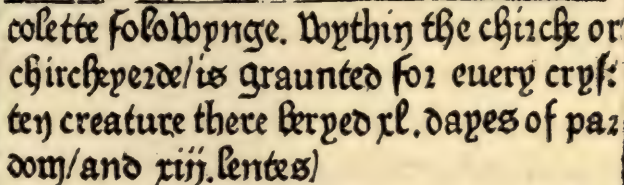 colette folowynge. Wythin the chirche or
chircheyerde/is graunted for euery cryſ:
ten creature there beryed xl. dayes of par
dom/and xiij. lentes)